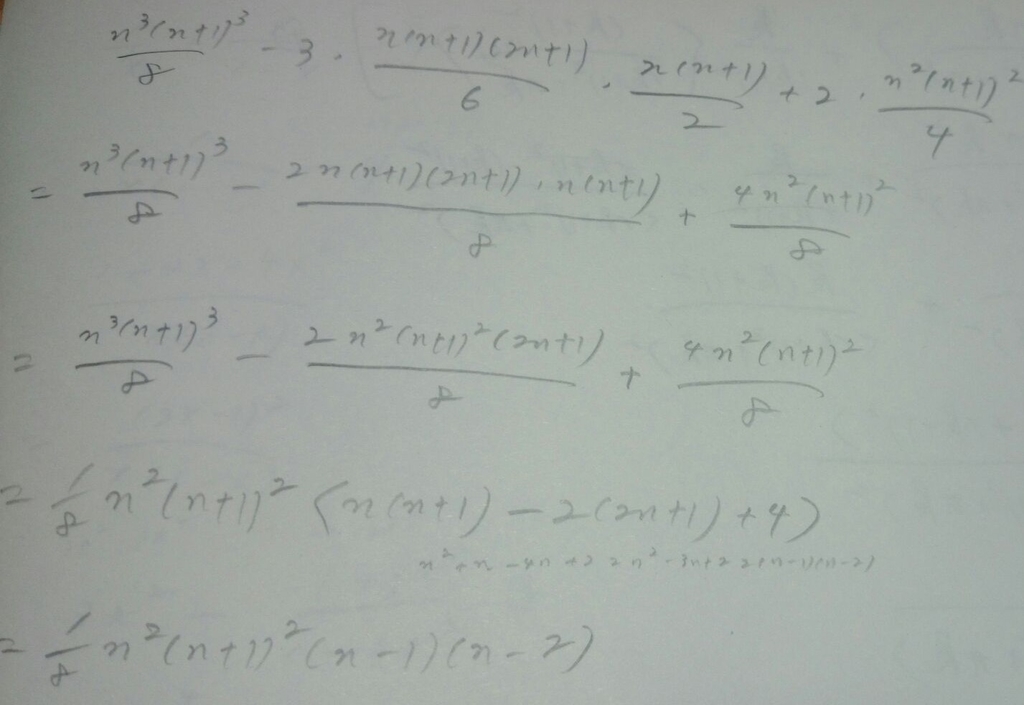 n³(n+1)³/8 - 3 · n(n+1)(2n+1)/6 · n(n+1)/2 + 2 · n²(n+1)²/4
= n³(n+1)³/8 - 2n(n+1)(2n+1)·n(n+1)/8 + 4n²(n+1)²/8
= n³(n+1)³/8 - 2n²(n+1)²(2n+1)/8 + 4n²(n+1)²/8
= 1/8 n²(n+1)² (n(n+1) - 2(2n+1) + 4)
n²+n-4n+2 = n²-3n+2 = (n-1)(n-2)
= 1/8 n²(n+1)²(n-1)(n-2)